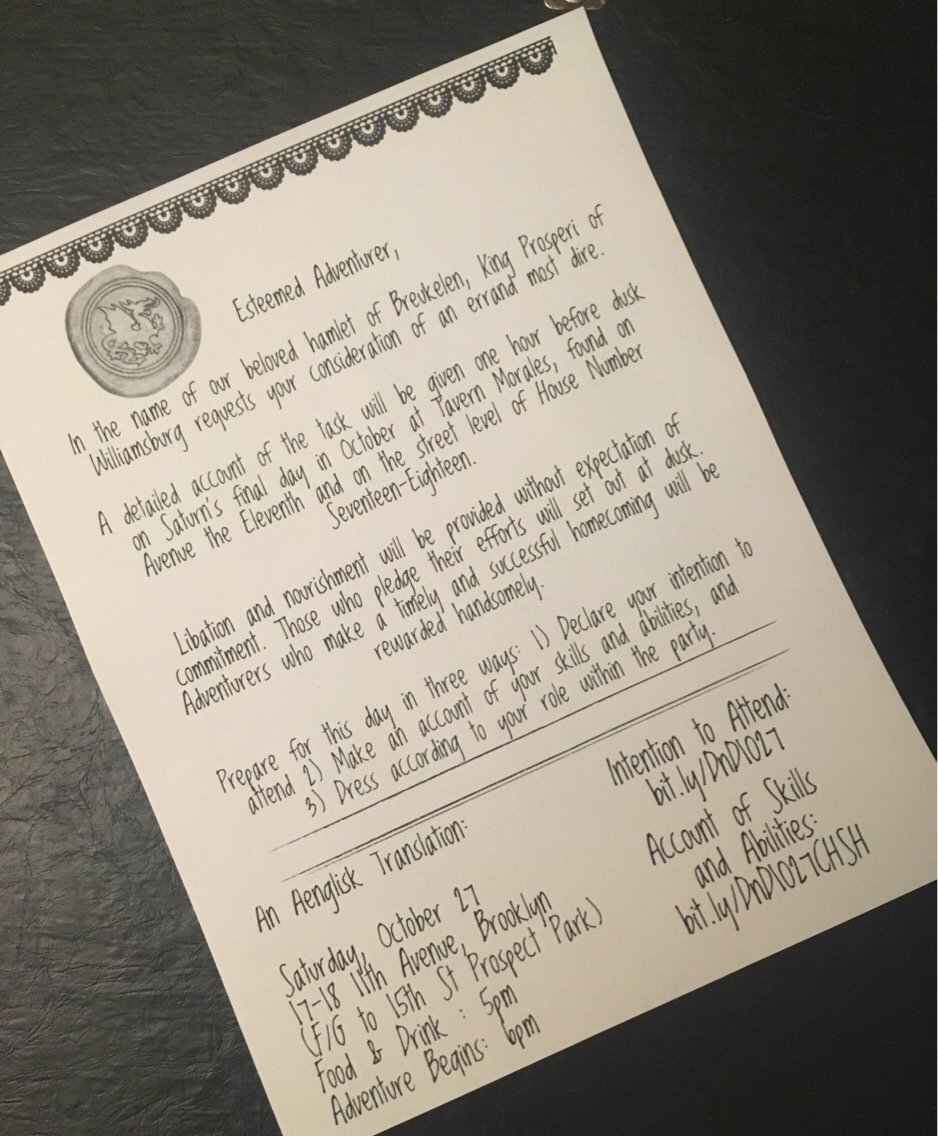 Esteemed Adventurer,
In the name of our beloved hamlet of Breukelen, King Prosperi of
Williamsburg requests your consideration of an errand most dire.
A detailed account of the task will be given one hour before dusk
on Saturn's final day in October at Tavern Morales, found on
Avenue the Eleventh and on the street level of House Number
Seventeen-Eighteen.
Libation and nourishment will be provided without expectation of
commitment. Those who pledge their efforts will set out at dusk.
Adventurers who make a timely and successful homecoming will be
rewarded handsomely.
Prepare for this day in three ways: 1) Declare your intention to
attend 2) Make an account of your skills and abilities, and
3) Dress according to your role within the party.
An Aenglisk Translation:
Saturday, October 27
17-18 11th Avenue, Brooklyn
(F/G to 15th St Prospect Park)
Food & Drink : 5pm
Adventure Begins: 6pm
Intention to Attend:
bit.ly/DnD1027
Account of Skills
and Abilities:
bit.ly/DnD1027CHSH